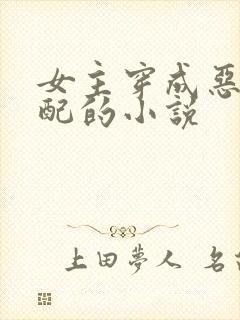 女主穿成惡
配的小說
上田夢人 名